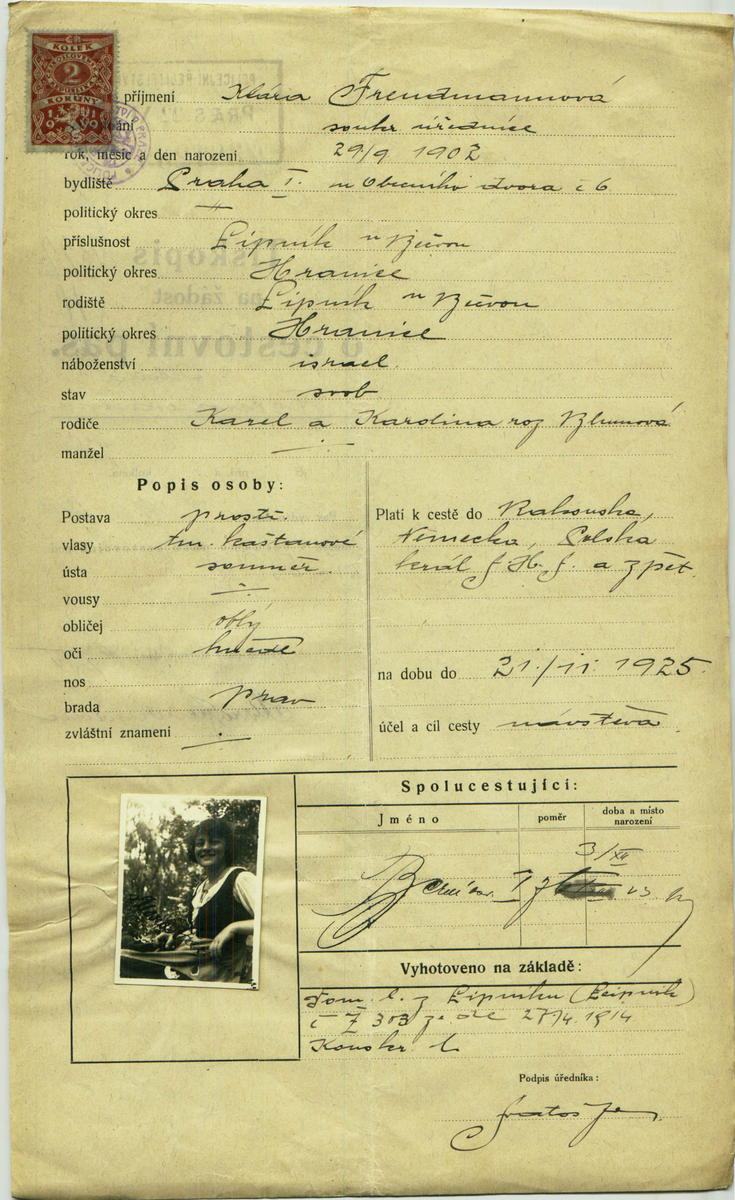 ČR
KOLEK
2
KORUNY
příjmení Klára Freudmannová
soukr úřednice
rok, měsíc a den narození 29/9 1902
bydliště Praha I. u Obecního dvora č 6
politický okres "
příslušnost Lipník n Bečvou
politický okres Hranice
rodiště Lipník n Bečvou
politický okres Hranice
náboženství israel.
stav svob
rodiče Karel a Karolina roz Blumová
manžel ·/·
Popis osoby:
Postava prostř.
vlasy tm. kaštanové
ústa souměr.
vousy ·/·
obličej oblý
oči hnědé
nos
brada prav
zvláštní znamení ·/·
Platí k cestě do Rakouska,
Německa, Polska
král S. H. S. a zpět.
na dobu do 21./11. 1925.
účel a cíl cesty návštěva
Spolucestující:
Jméno poměr doba a místo narození
3/XII
Vyhotoveno na základě:
Dom. l. z Lipníku (Leipnik)
č Z 303 ze dne 27/4. 1914
Konskr. l
Podpis úředníka: